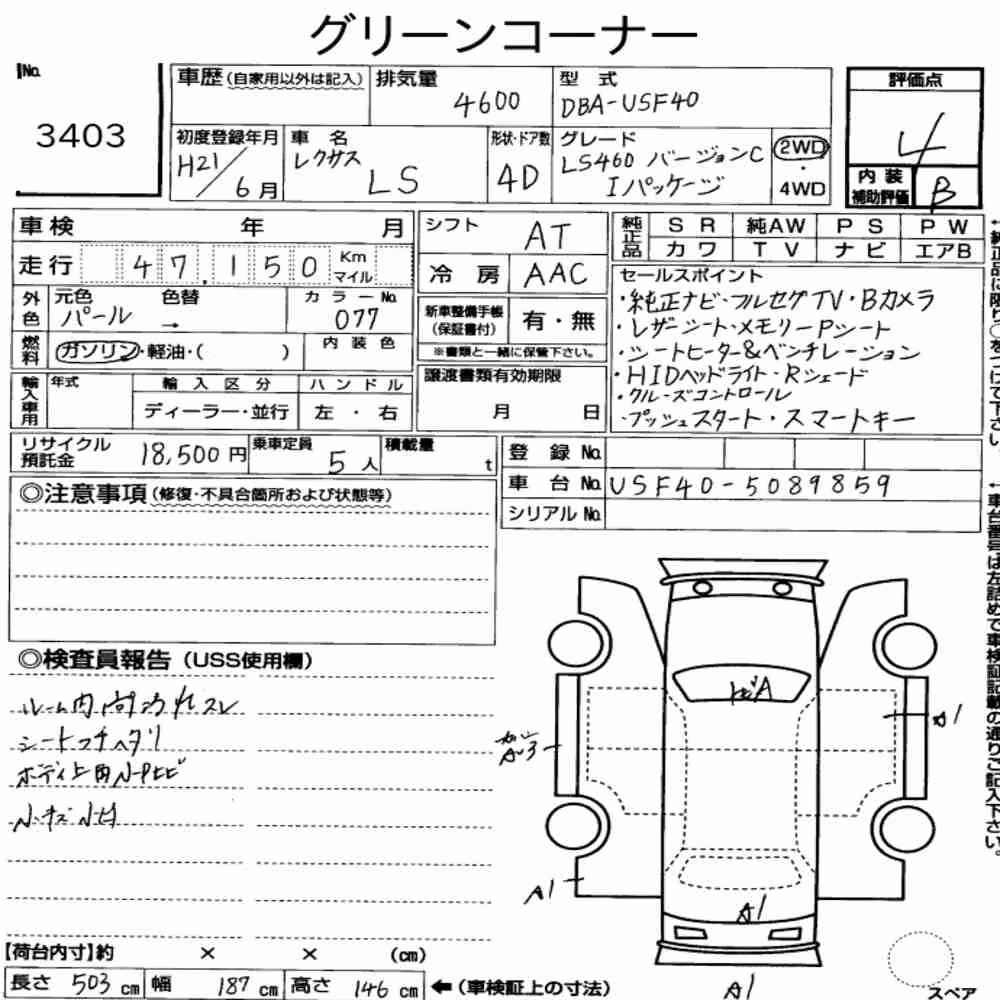 グリーンコーナー
No.
3403
車歴 (自家用以外は記入)
排気量
4600
型式
DBA-USF40
初度登録年月
H21/6月
車名
レクサス
LS
形状・ドア数
4D
グレード
LS460 バージョンC
Iパッケージ
2WD
・
4WD
評価点
4
内装
補助評価
B
車検 年 月
走行 47,150 Km
マイル
外色
元色 色替
パール →
カラーNo.
077
燃料
ガソリン・軽油・( )
内装色
輸入車用
年式
輸入区分
ディーラー・並行
ハンドル
左・右
シフト
AT
冷房
AAC
新車整備手帳
(保証書付)
有・無
※書類と一緒に保管下さい。
譲渡書類有効期限
月 日
純正品
SR 純AW PS PW
カワ TV ナビ エアB
セールスポイント
・純正ナビ・フルセグTV・Bカメラ
・レザーシート・メモリーPシート
・シートヒーター&ベンチレーション
・HIDヘッドライト・Rシェード
・クルーズコントロール
・プッシュスタート・スマートキー
リサイクル
預託金
18,500円
乗車定員
5人
積載量
t
登録No.
車台No. USF40-5089859
シリアルNo.
◎注意事項 (修復・不具合箇所および状態等)
◎検査員報告 (USS使用欄)
ルーム内
スレ
シート
ヘタリ
小キズ
A1
A1
A1
A1
【荷台内寸】約 × × (cm)
長さ 503 cm 幅 187 cm 高さ 146 cm ←(車検証上の寸法)
スペア
←純正品に限り○をつけて下さい。
←車台番号は左詰めで車検証記載の通りご記入下さい。